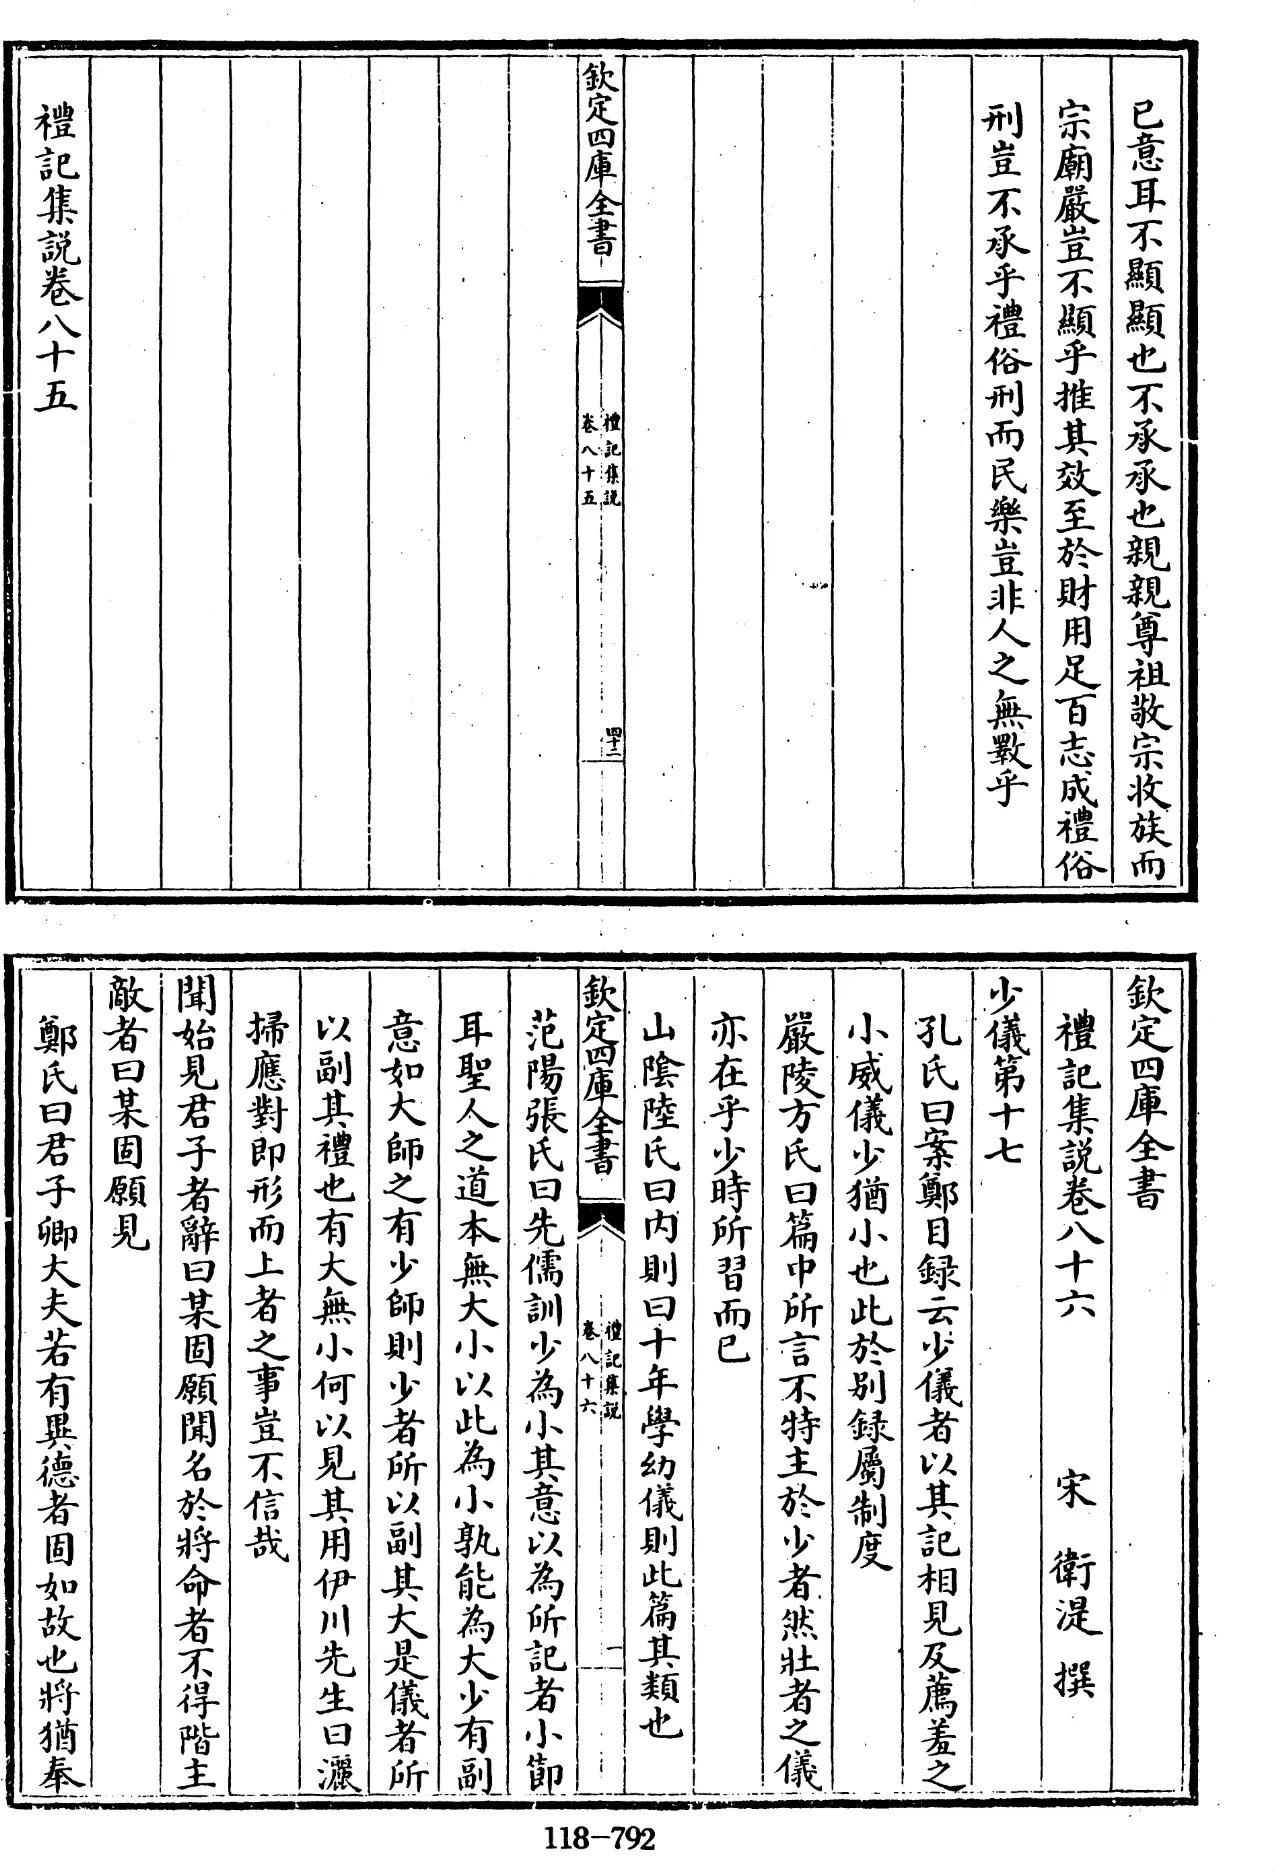 已意耳不顯顯也不承承也親親尊祖敬宗收族而
宗廟嚴豈不顯乎推其效至於財用足百志成禮俗
刑豈不承乎禮俗刑而民樂豈非人之無斁乎
欽定四庫全書
禮記集説
卷八十五
四十二
禮記集説卷八十五
欽定四庫全書
禮記集説卷八十六
宋 衛湜 撰
少儀第十七
孔氏曰案鄭目録云少儀者以其記相見及薦羞之
小威儀少猶小也此於别録屬制度
嚴陵方氏曰篇中所言不特主於少者然壯者之儀
亦在乎少時所習而已
山陰陸氏曰内則曰十年學幼儀則此篇其類也
欽定四庫全書
禮記集説
卷八十六
一
范陽張氏曰先儒訓少為小其意以為所記者小節
耳聖人之道本無大小以此為小孰能為大少有副
意如大師之有少師則少者所以副其大是儀者所
以副其禮也有大無小何以見其用伊川先生曰灑
掃應對即形而上者之事豈不信哉
聞始見君子者辭曰某固願聞名於將命者不得階主
敵者曰某固願見
鄭氏曰君子卿大夫若有異德者固如故也將猶奉
118-792